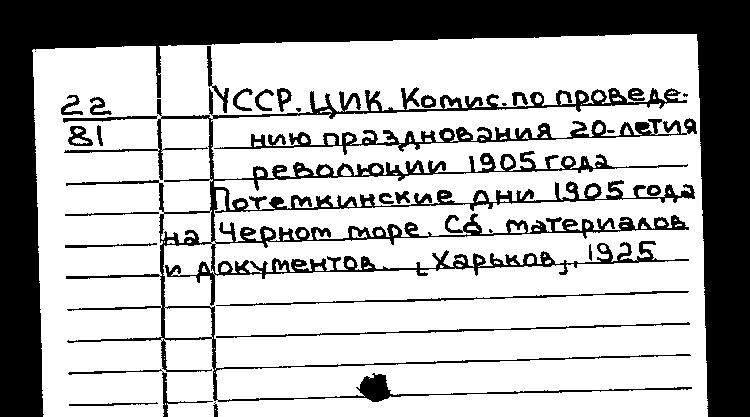 22
81
УССР. ЦИК. Комис. по проведе-
нию празднования 20-летия
революции 1905 года
Потемкинские дни 1905 года
на Черном море. Сб. материалов
и документов. [Харьков], 1925